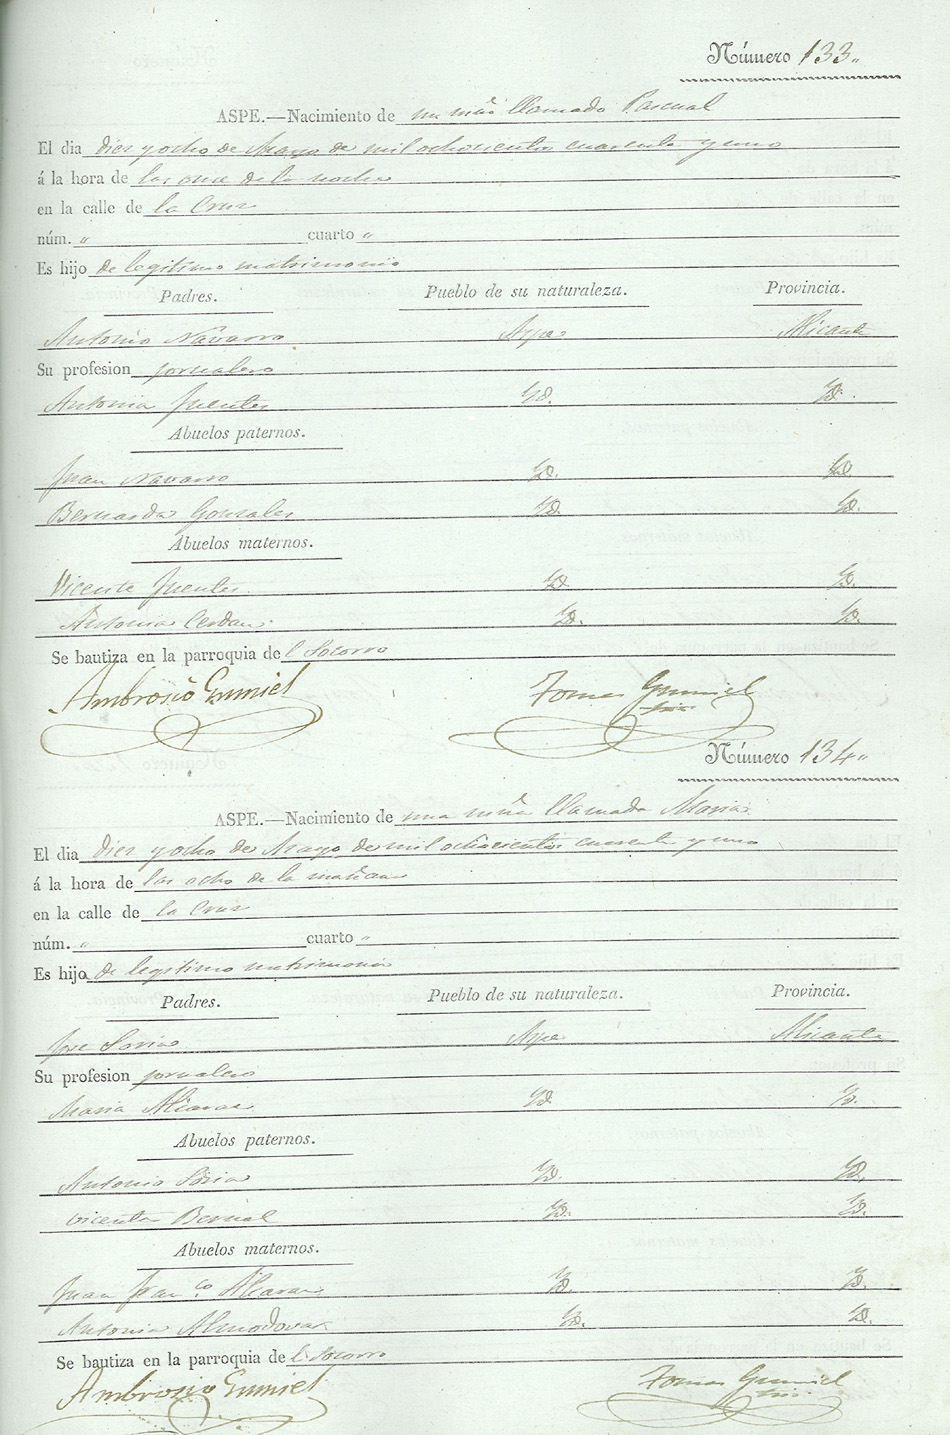 Número 133.
ASPE.—Nacimiento de un niño llamado Pascual
El dia diez y ocho de Mayo de mil ochocientos cuarenta y uno
á la hora de las once de la noche
en la calle de la Cruz
núm. " cuarto "
Es hijo de legitimo matrimonio
Padres. Pueblo de su naturaleza. Provincia.
Antonio Navarro Aspe Alicante
Su profesion jornalero
Antonia Fuentes Yd. Yd.
Abuelos paternos.
Juan Navarro Yd. Yd.
Bernarda Gonzales Yd. Yd.
Abuelos maternos.
Vicente Fuentes Yd. Yd.
Antonia Cerdan Yd. Yd.
Se bautiza en la parroquia de l Socorro
Ambrosio Gumiel Tomas Gumiel
Número 134.
ASPE.—Nacimiento de una niña llamada Maria
El dia diez y ocho de Mayo de mil ochocientos cuarenta y uno
á la hora de las ocho de la mañana
en la calle de la Cruz
núm. " cuarto "
Es hijo de legitimo matrimonio
Padres. Pueblo de su naturaleza. Provincia.
Jose Soria Aspe Alicante
Su profesion jornalero
Maria Alcaraz Yd. Yd.
Abuelos paternos.
Antonio Soria Yd. Yd.
Vicenta Bernal Yd. Yd.
Abuelos maternos.
Juan Fran.co Alcaraz Yd. Yd.
Antonia Almodovar Yd. Yd.
Se bautiza en la parroquia de l Socorro
Ambrosio Gumiel Tomas Gumiel